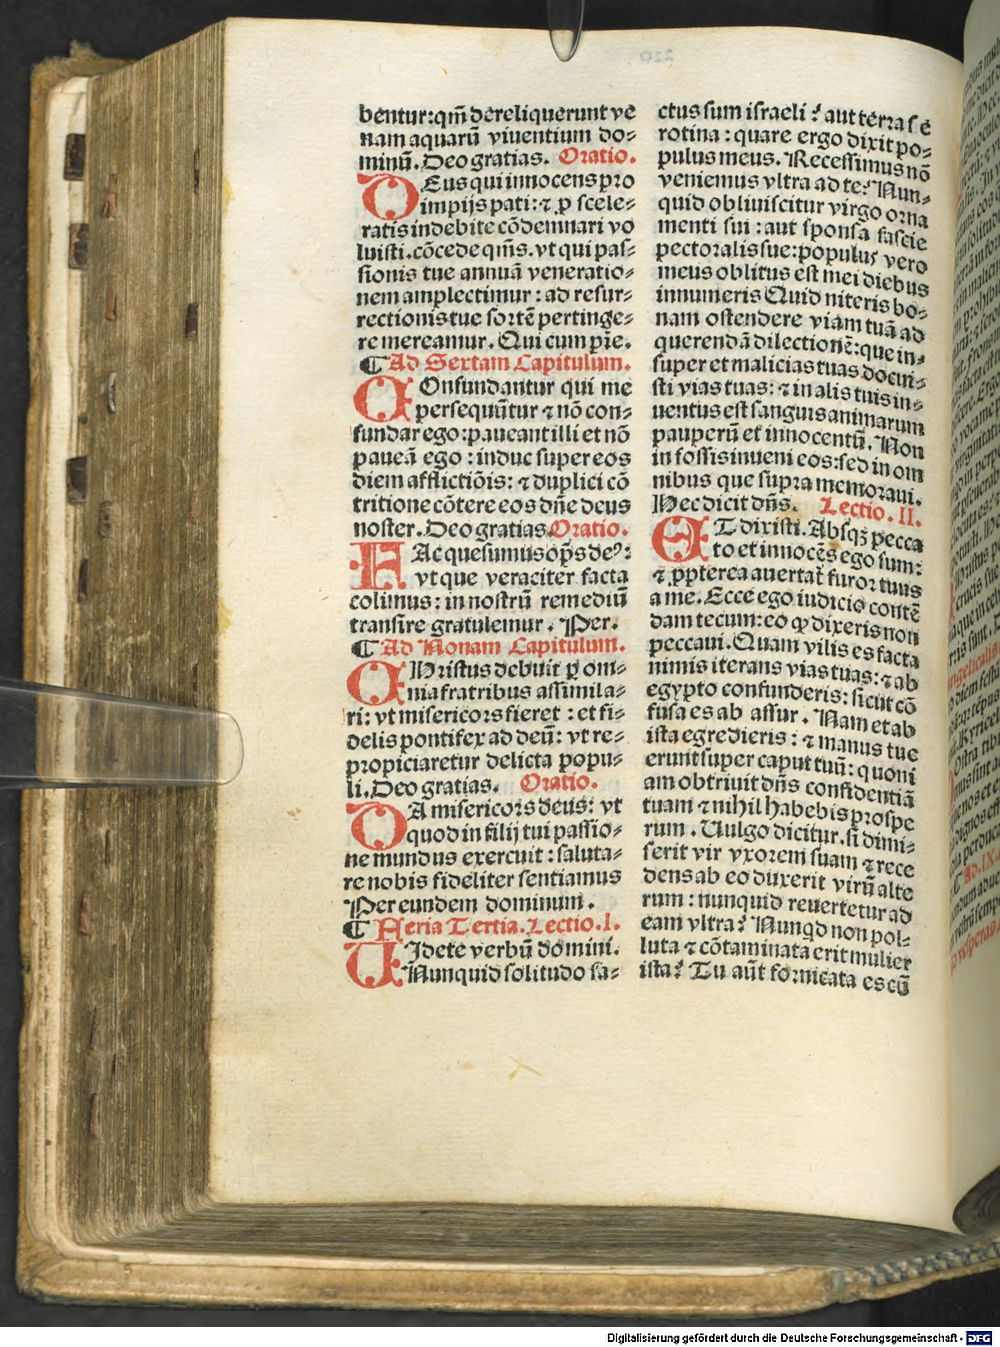 bentur: qm̃ dereliquerunt ve
nam aquarũ viuentium do⸗
minũ. Deo gratias. Oratio.
DEus qui innocens pro
impijs pati: ⁊ ꝓ scele⸗
ratis indebite cõdemnari vo
luisti. cõcede qm̃s. vt qui pas⸗
sionis tue annuã veneratio⸗
nem amplectimur: ad resur⸗
rectionis tue sortẽ pertinge⸗
re mereamur. Qui cum pr̃e.
¶ Ad Sextam Capitulum.
COnfundantur qui me
persequũtur ⁊ nõ con⸗
fundar ego: paueant illi et nõ
paueã ego: induc super eos
diem afflictiõis: ⁊ duplici cõ
tritione cõtere eos dñe deus
noster. Deo gratias. Oratio.
HAc quesumus op̃s deꝰ:
vt que veraciter facta
colimus: in nostrũ remediũ
transire gratulemur. Per.
¶ Ad Nonam Capitulum.
CHristus debuit ꝑ om⸗
nia fratribus assimila⸗
ri: vt misericors fieret: et fi⸗
delis pontifex ad deũ: vt re⸗
propiciaretur delicta popu⸗
li. Deo gratias. Oratio.
DA misericors deus: vt
quod in filij tui passio⸗
ne mundus exercuit: saluta⸗
re nobis fideliter sentiamus
Per eundem dominum.
¶ Feria Tertia. Lectio. I.
VIdete verbũ domini.
Nunquid solitudo fa⸗
ctus sum israeli? aut terra se
rotina: quare ergo dixit po⸗
pulus meus. Recessimus nõ
veniemus vltra ad te? Nun⸗
quid obliuiscitur virgo orna
menti sui: aut sponsa fascie
pectoralis sue: populus vero
meus oblitus est mei diebus
innumeris Quid niteris bo⸗
nam ostendere viam tuã ad
querendã dilectionẽ: que in⸗
super et malicias tuas docui⸗
sti vias tuas: ⁊ in alis tuis in⸗
uentus est sanguis animarum
pauperũ et innocentũ. Non
in fossis inueni eos: sed in om
nibus que supra memoraui.
Hec dicit dñs. Lectio. II.
ET dixisti. Absqꝫ pecca
to et innocẽs ego sum:
⁊ ꝓpterea auertat̃ furor tuus
a me. Ecce ego iudicio contẽ
dam tecum: eo ꝙ dixeris non
peccaui. Quam vilis es facta
nimis iterans vias tuas: ⁊ ab
egypto confunderis: sicut cõ
fusa es ab assur. Nam et ab
ista egredieris: ⁊ manus tue
erunt super caput tuũ: quoni
am obtriuit dñs confidentiã
tuam ⁊ nihil habebis prospe
rum. Vulgo dicitur. si dimi⸗
serit vir vxorem suam ⁊ rece
dens ab eo duxerit virũ alte
rum: nunquid reuertetur ad
eam vltra? Nunqd non pol⸗
luta ⁊ cõtaminata erit mulier
ista? Tu aũt fornicata es cũ
Digitalisierung gefördert durch die Deutsche Forschungsgemeinschaft - DFG